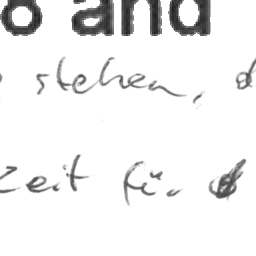 8 and
stehen, d
Zeit für